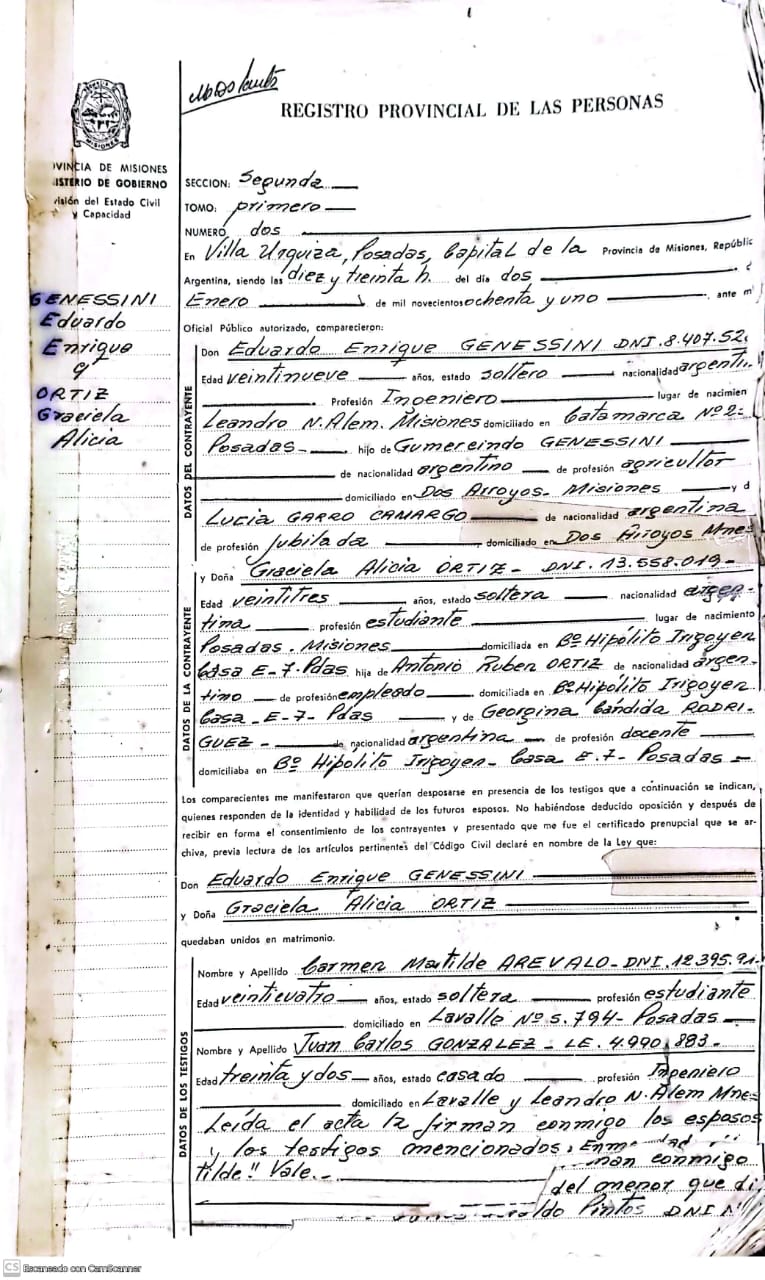 REGISTRO PROVINCIAL DE LAS PERSONAS
MISIONES
VINCIA DE MISIONES
ISTERIO DE GOBIERNO
isión del Estado Civil
y Capacidad
GENESSINI
Eduardo
Enrique
y
ORTIZ
Graciela
Alicia
SECCION: Segunda
TOMO: primero
NUMERO dos
En Villa Urquiza, Posadas, Capital de la Provincia de Misiones, Repúblic
Argentina, siendo las diez y treinta h. del día dos
Enero de mil novecientos ochenta y uno, ante m
Oficial Público autorizado, comparecieron:
DATOS DEL CONTRAYENTE
Don Eduardo Enrique GENESSINI DNI.8.407.52.
Edad veintinueve años, estado soltero nacionalidad argenti.
Profesión Ingeniero lugar de nacimien
Leandro N. Alem. Misiones domiciliado en Catamarca Nº 2
Posadas- hijo de Gumereindo GENESSINI
de nacionalidad argentino de profesión agricultor
domiciliado en Dos Arroyos. Misiones y d
Lucia GARRO CAMARGO de nacionalidad argentina
de profesión jubilada domiciliado en Dos Arroyos Mnes
DATOS DE LA CONTRAYENTE
y Doña Graciela Alicia ORTIZ- DNI. 13.558.019-
Edad veintitres años, estado soltera nacionalidad argen-
tina profesión estudiante lugar de nacimiento
Posadas. Misiones domiciliada en Bº Hipólito Irigoyen
Casa E-7. Pdas hija de Antonio Ruben ORTIZ de nacionalidad argen-
tino de profesión empleado domiciliada en Bº Hipólito Irigoyen
Casa E-7- Pdas y de Georgina Cándida RODRI-
GUEZ- de nacionalidad argentina de profesión docente
domiciliaba en Bº Hipólito Irigoyen- Casa E.7- Posadas-
Los comparecientes me manifestaron que querían desposarse en presencia de los testigos que a continuación se indican,
quienes responden de la identidad y habilidad de los futuros esposos. No habiéndose deducido oposición y después de
recibir en forma el consentimiento de los contrayentes y presentado que me fue el certificado prenupcial que se ar-
chiva, previa lectura de los artículos pertinentes del Código Civil declaré en nombre de la Ley que:
Don Eduardo Enrique GENESSINI
y Doña Graciela Alicia ORTIZ
quedaban unidos en matrimonio.
DATOS DE LOS TESTIGOS
Nombre y Apellido Carmen Matilde AREVALO- DNI. 12.395.91
Edad veinticuatro años, estado soltera profesión estudiante
domiciliado en Lavalle Nº 5.794- Posadas
Nombre y Apellido Juan Carlos GONZALEZ- LE. 4.990.883-
Edad treinta y dos años, estado casado profesión Ingeniero
domiciliado en Lavalle y Leandro N. Alem Mnes
Leída el acta la firman conmigo los esposos
y los testigos mencionados.
tilde" Vale.- man conmigo
del menor que di
aldo Pintos DNI N
CS Escaneado con CamScanner